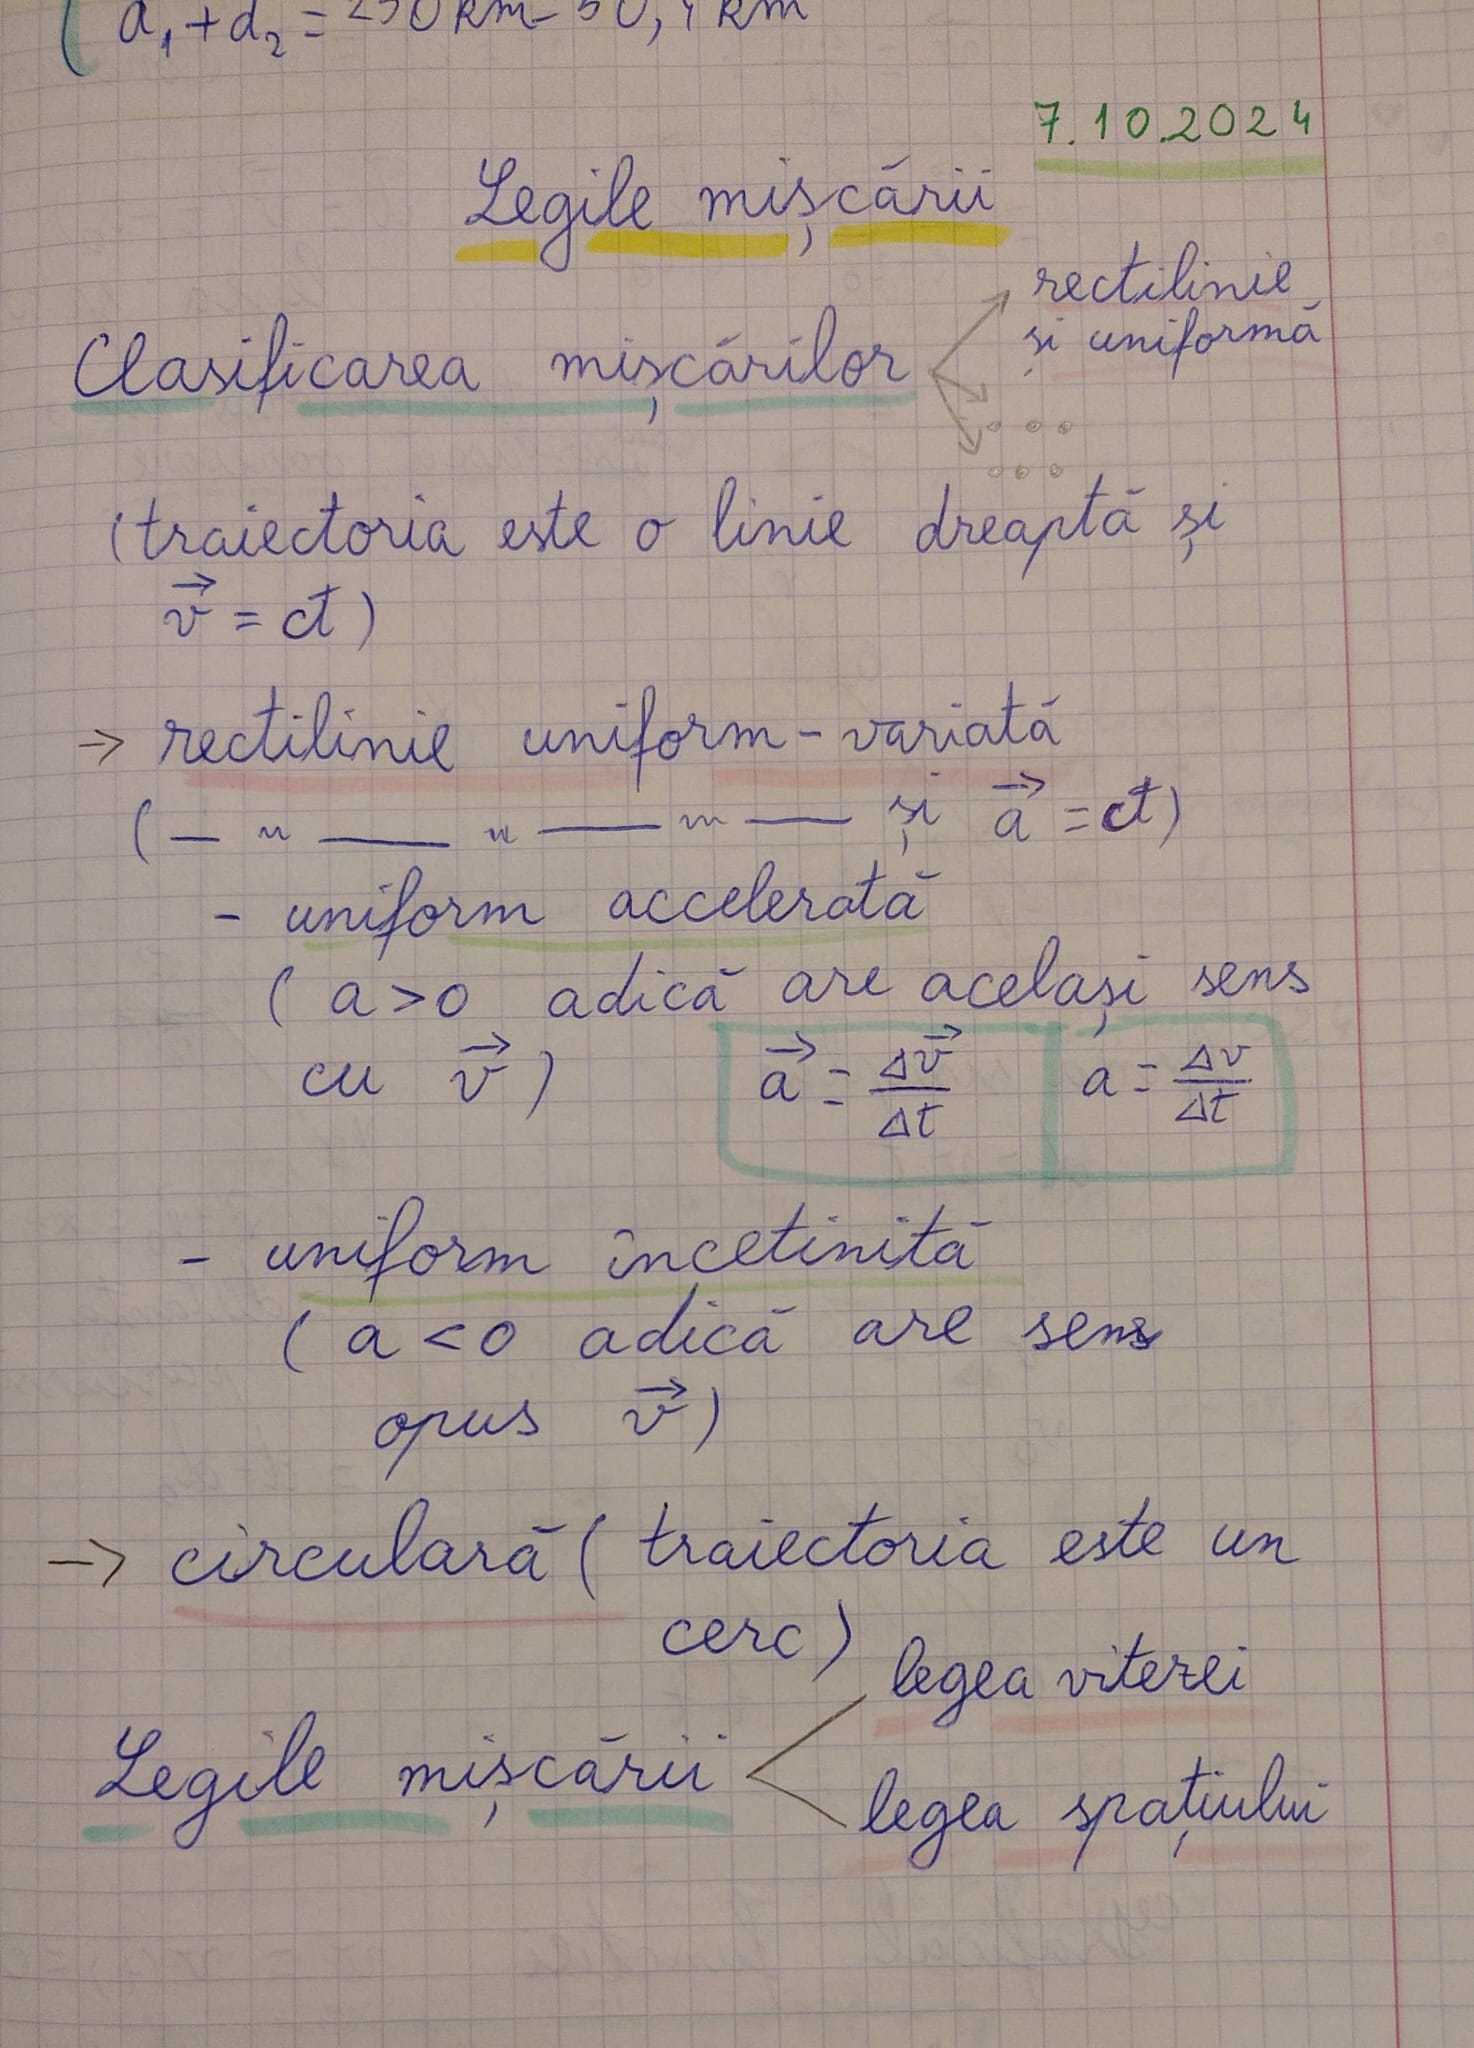 d₁ + d₂ = 250 km - 50,4 km
7.10.2024
Legile mișcării
Clasificarea mișcărilor
rectilinie
și uniformă
...
...
(traiectoria este o linie dreaptă și
v⃗ = ct)
→ rectilinie uniform-variată
( — " — " — " — și a⃗ = ct)
- uniform accelerată
( a > 0 adică are același sens
cu v⃗ ) a⃗ = Δv⃗/Δt a = Δv/Δt
- uniform încetinită
( a < 0 adică are sens
opus v⃗ )
→ circulară ( traiectoria este un
cerc)
Legile mișcării
legea vitezei
legea spațiului